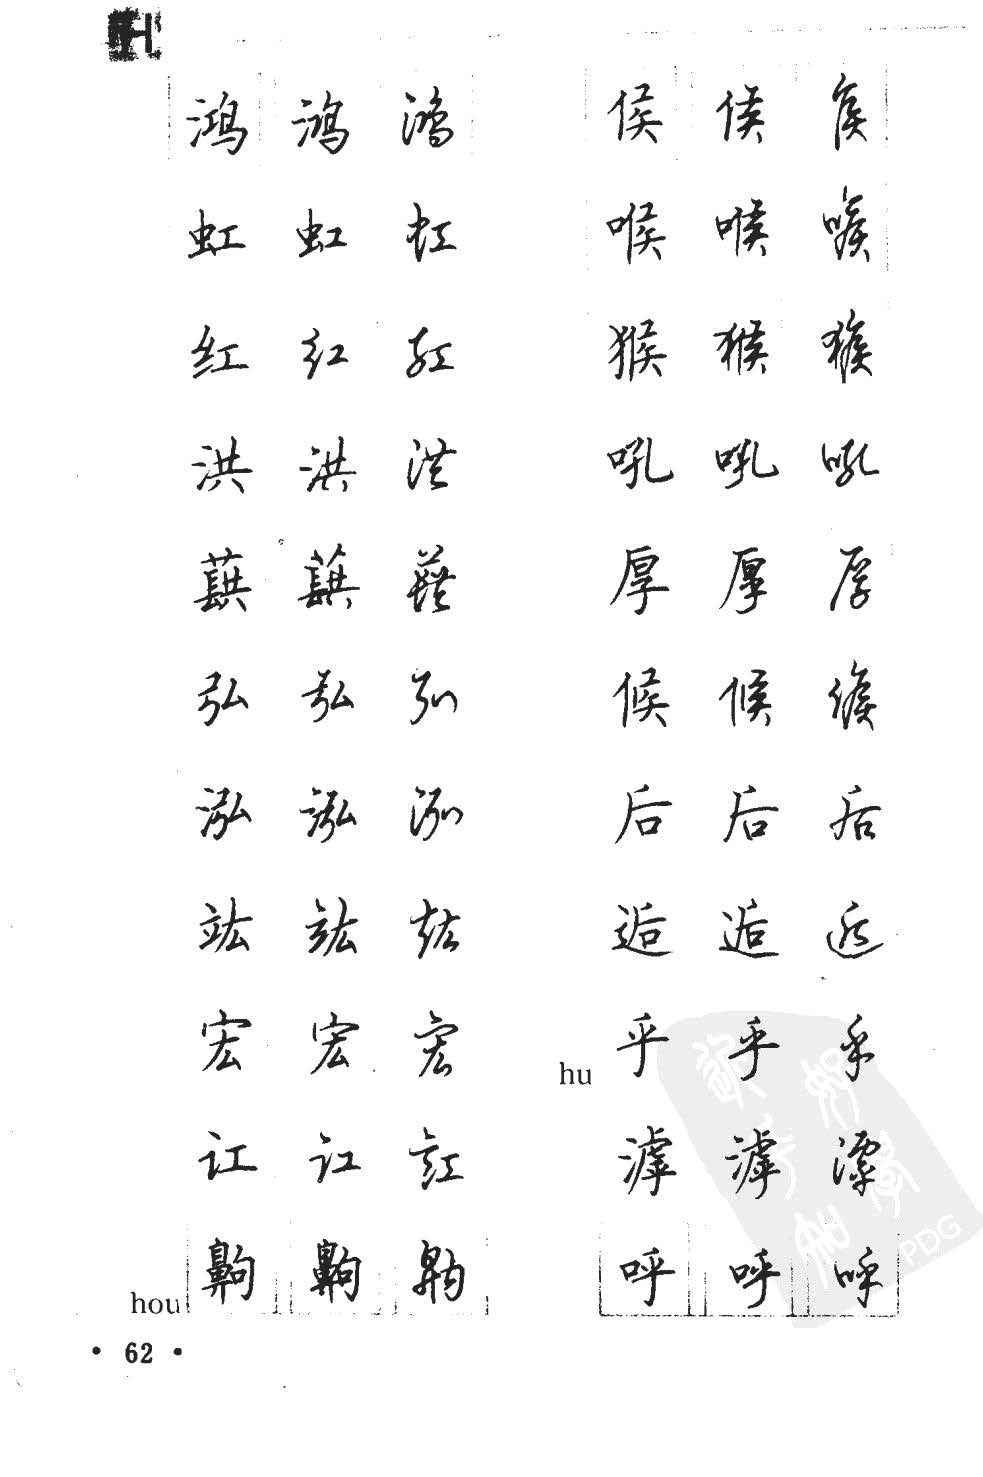 H
鸿 鸿 鸿 侯 侯 侯
虹 虹 虹 喉 喉 喉
红 红 红 猴 猴 猴
洪 洪 洪 吼 吼 吼
蕻 蕻 蕻 厚 厚 厚
弘 弘 弘 候 候 候
泓 泓 泓 后 后 后
竑 竑 竑 逅 逅 逅
宏 宏 宏 hu 乎 乎 乎
讧 讧 讧 滹 滹 滹
hou 齁 齁 齁 呼 呼 呼
PDG
• 62 •